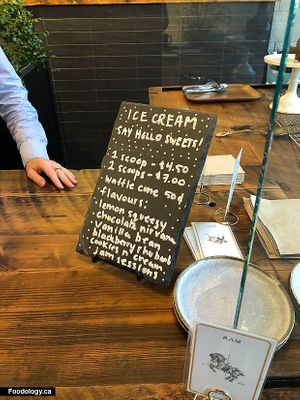 ICE CREAM
SAY HELLO SWEETS!
1 scoop - $4.50
2 scoops - $7.00
waffle cone 50¢
flavours:
lemon squeesy
chocolate nirvana
vanilla bean
blackberry rhubarb
cookies n' cream
jam sessions
RAM
Foodology.ca